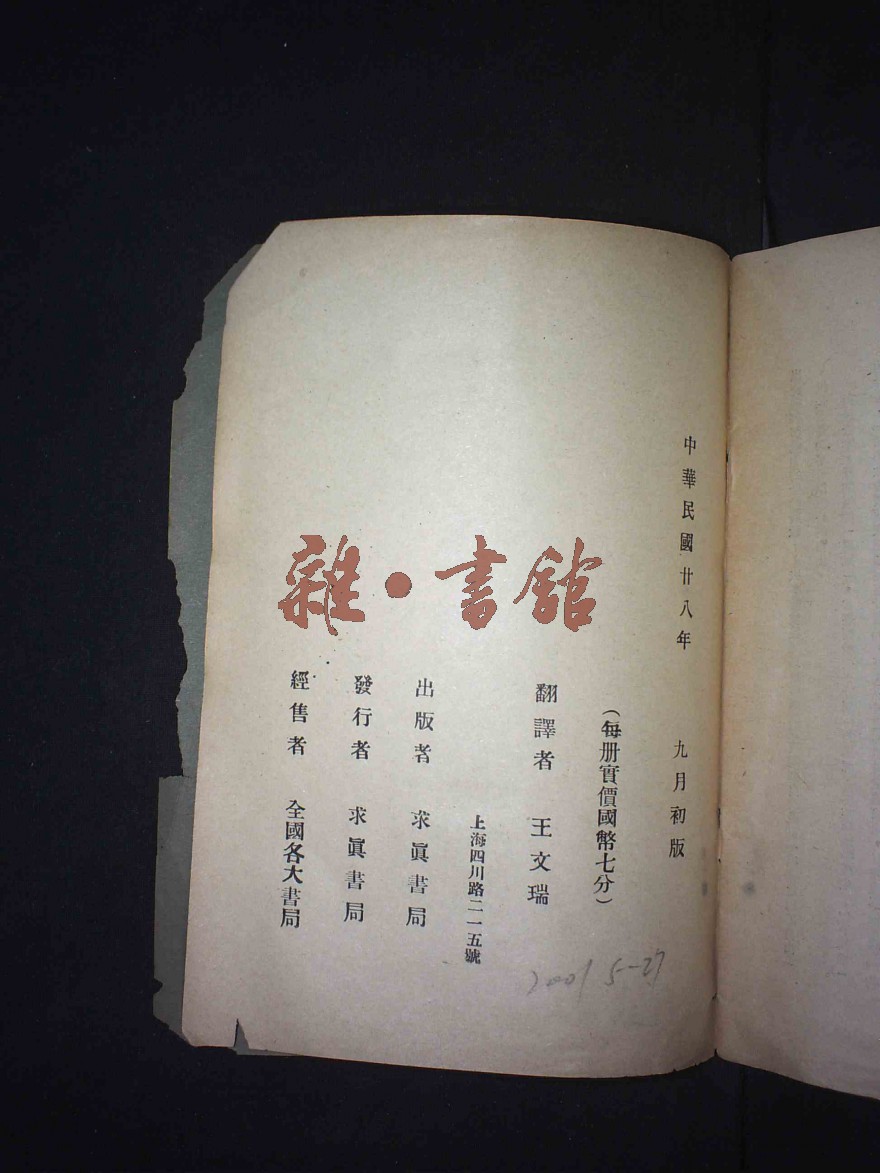 中華民國廿八年 九月初版
（每册實價國幣七分）
翻譯者 王文瑞
上海四川路二一五號
出版者 求眞書局
發行者 求眞書局
經售者 全國各大書局
雜·書館
2001 5-27